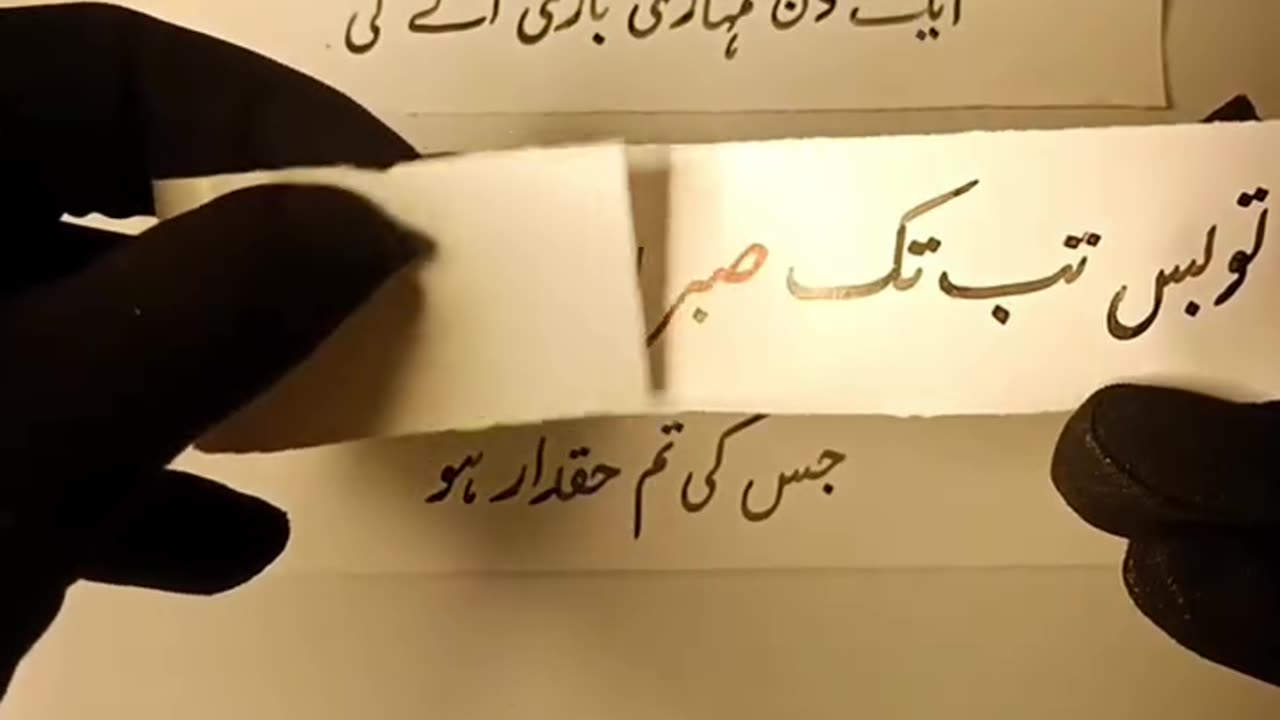 ایک دن تمہاری باری آئے گی
تو بس تب تک صبر
جس کی تم حقدار ہو